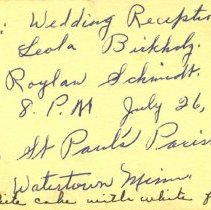 : Wedding Reception
Leola Birkholz.
Roylan Schmidt.
8. P.M July 26,
St Paul's Paris
Watertown Minn.
cake with white